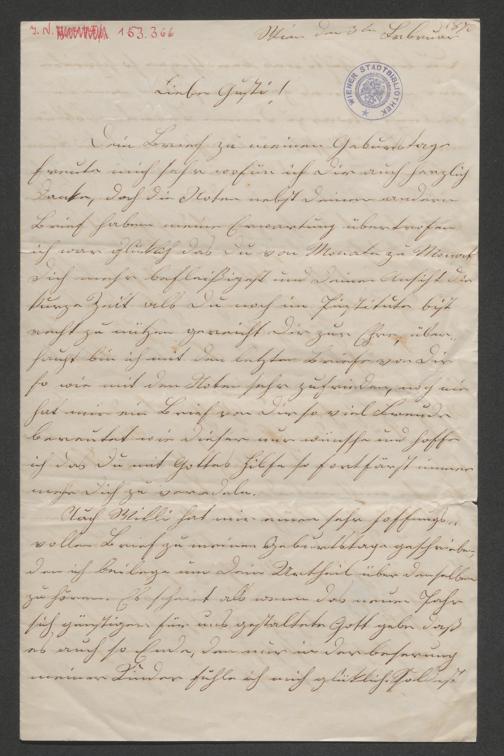 J. N. 153.366
Wien den 3ten Februar
WIENER STADTBIBLIOTHEK
Liebe Gusti!
Dein Brief zu meinen Geburtstage
freute mich sehr wofür ich Dir auch herzlich
danke, doch die Noten nebst Deinen andern
Brief haben meine Erwartung übertrofen
ich war glüklich das Du von Monate zu Monat
Dich mehr befleißigest und Deine Ansicht die
kurze Zeit als Du noch im Institute bist
recht zu nützen gereicht Dir zur Ehre, über-
haupt bin ich mit den letzten Briefe von Dir
so wie mit den Noten sehr zufrieden, noch nie
hat mir ein Brief von Dir so viel Freude
bereitet wie dieser nur wünsche und hoffe
ich das Du mit Gottes Hilfe so fortfärst immer
mehr Dich zu veredeln.
Auch Willi hat mir einen sehr hoffnungs-
vollen Brief zu meinen Geburtstage geschrieben
den ich beilege um Dein Urtheil über denselben
zu hören. Es scheint als wenn das neue Jahr
sich günstiger für uns gestaltete Gott gebe daß
es auch so Ende, den nur in der beserung
meiner Kinder fühle ich mich glüklich.